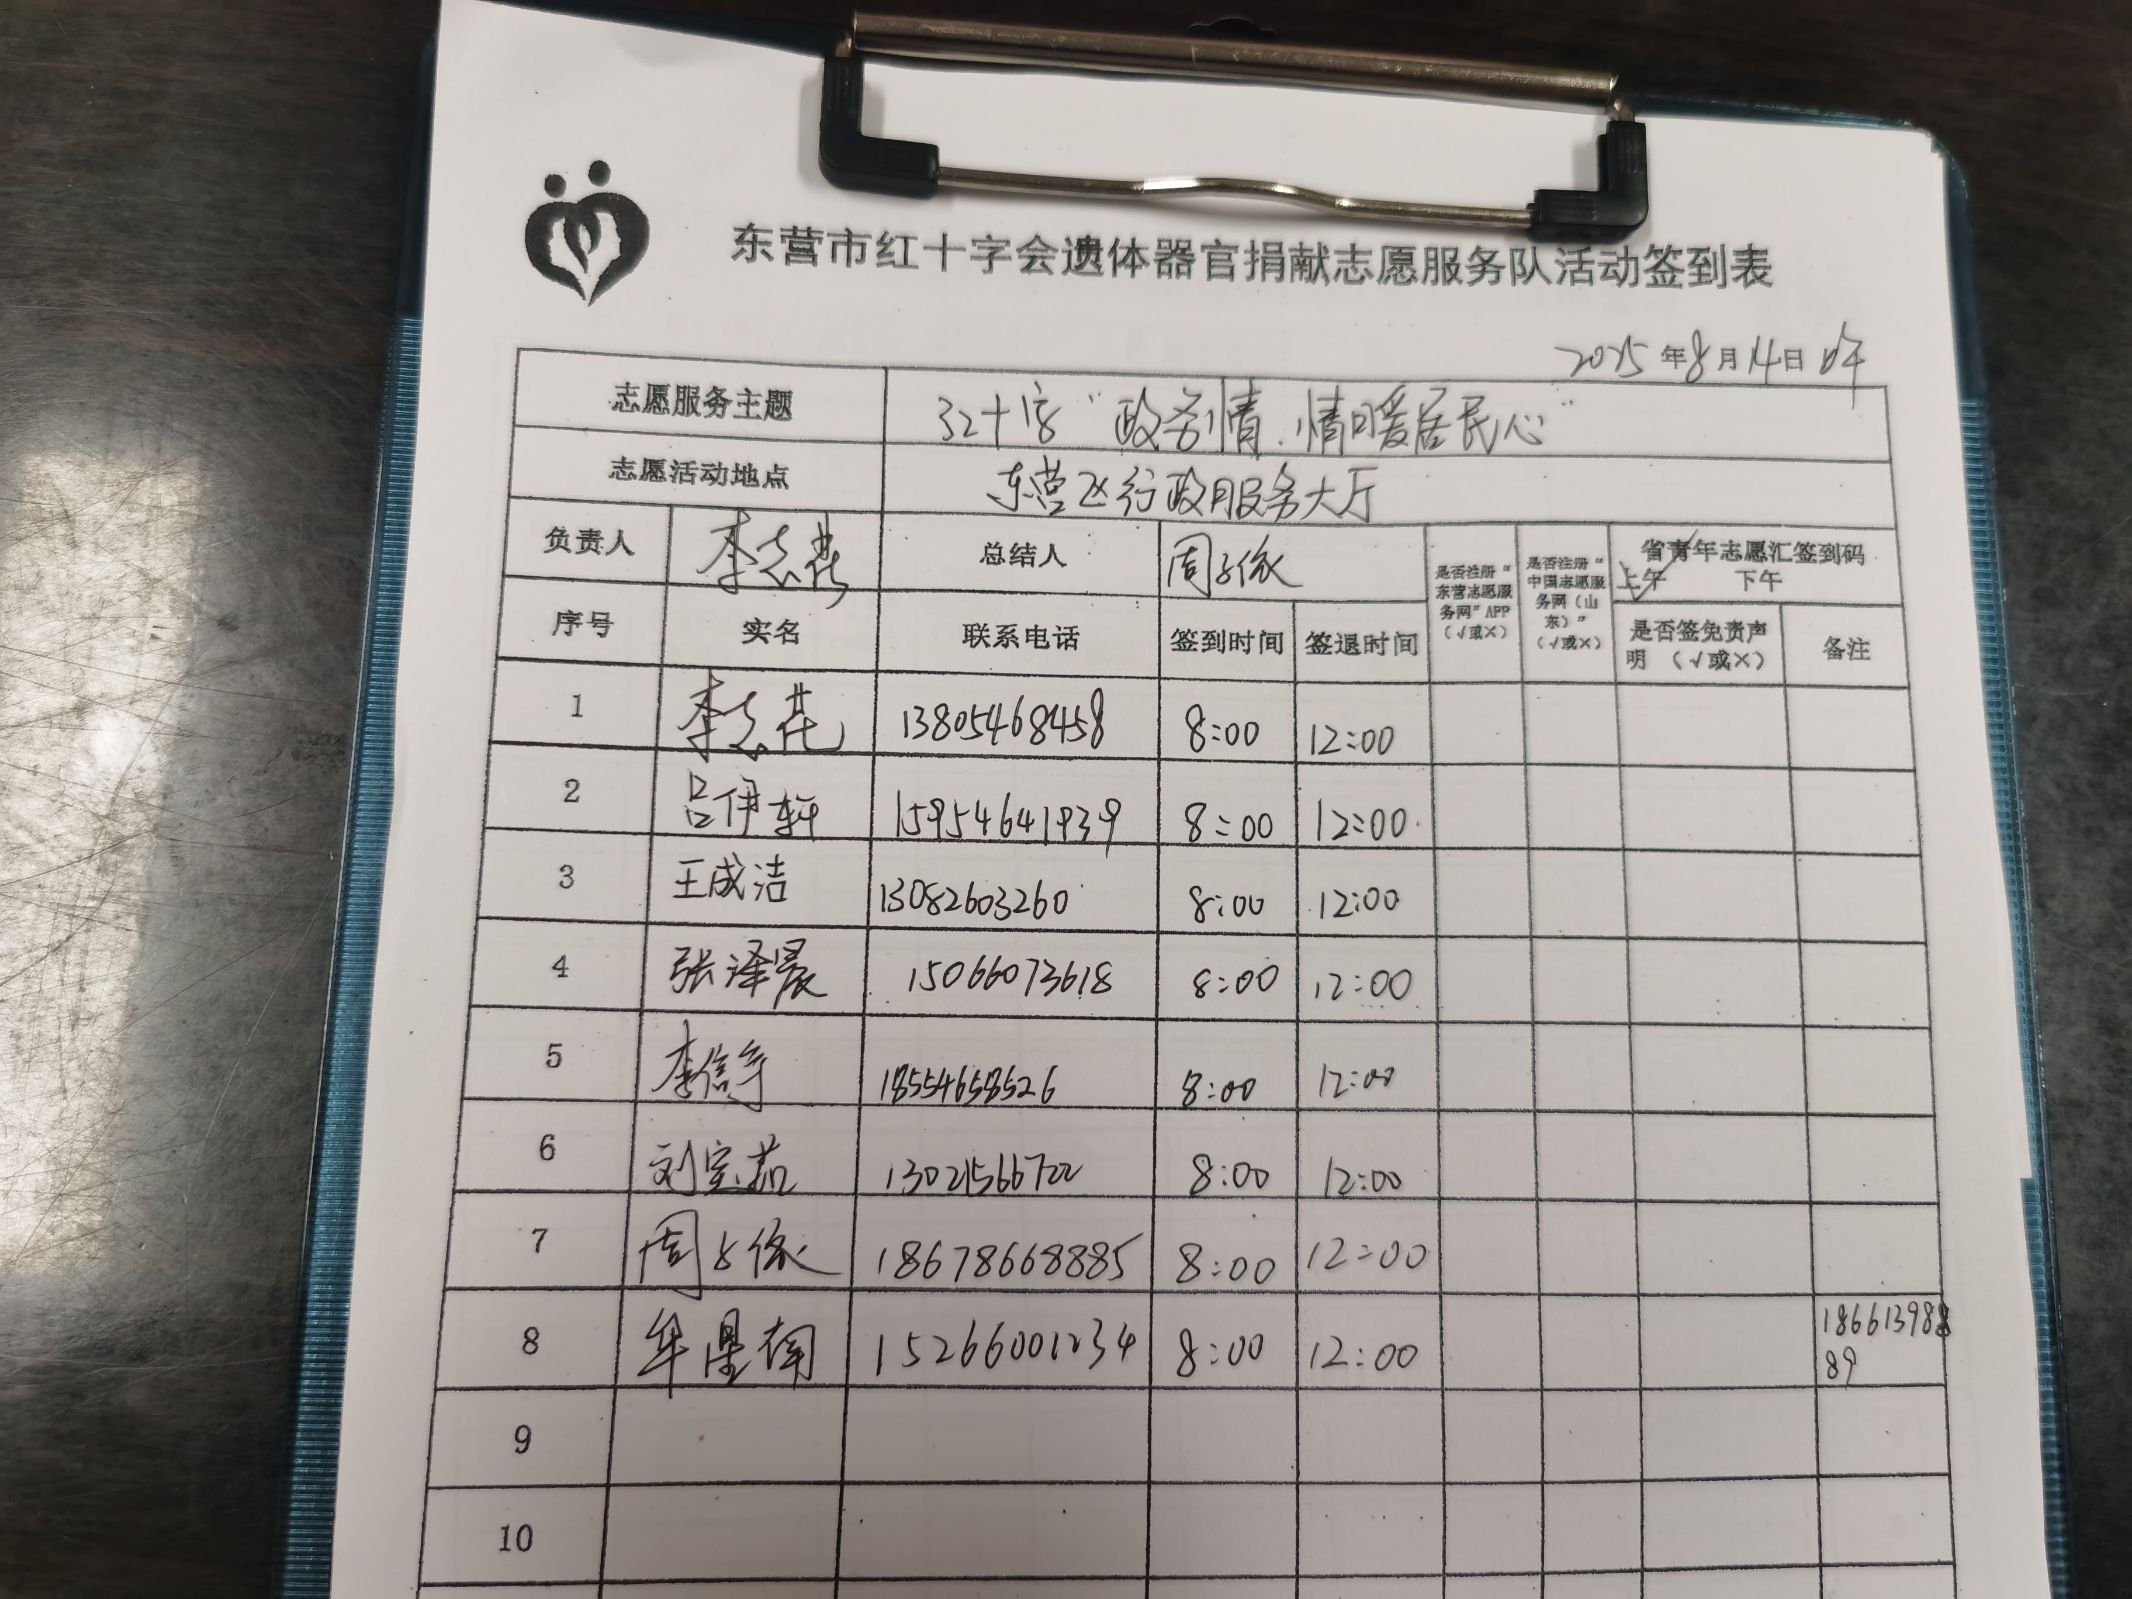 东营市红十字会遗体器官捐献志愿服务队活动签到表
2025年8月14日
志愿服务主题 红十字“政务情.情暖居民心”
志愿活动地点 东营区行政服务大厅
负责人 李志燕 总结人 周子依 是否注册“东营志愿服务网”APP（√或×） 是否注册“中国志愿服务网（山东）”（√或×） 省青年志愿汇签到码
上午 下午
序号 实名 联系电话 签到时间 签退时间 是否签免责声明 （√或×） 备注
1 李志燕 13805468458 8:00 12:00
2 吕伊轩 15954641939 8:00 12:00.
3 王成洁 13082603260 8:00 12:00
4 张泽晨 15066073618 8:00 12:00
5 李信宇 18554658526 8:00 12:00
6 刘宝茹 13021566722 8:00 12:00
7 周子依 18678668885 8:00 12:00
8 牟 15266001234 8:00 12:00 18661398889
9
10